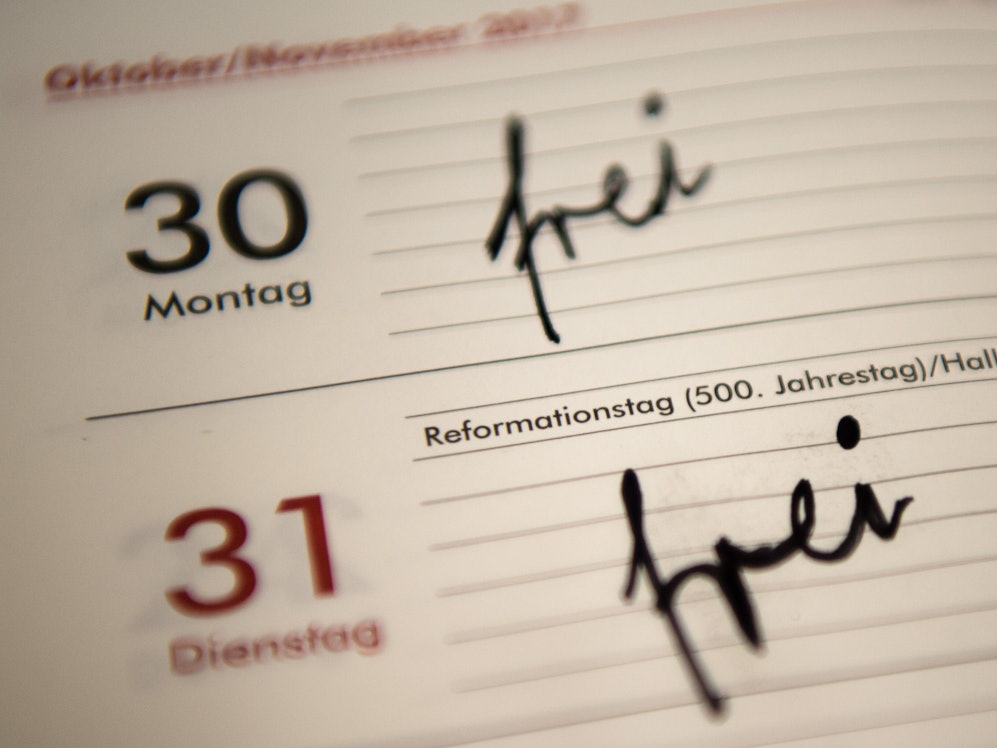 Oktober/November 2017
30
frei
Montag
Reformationstag (500. Jahrestag)/Hall
31
frei
Dienstag